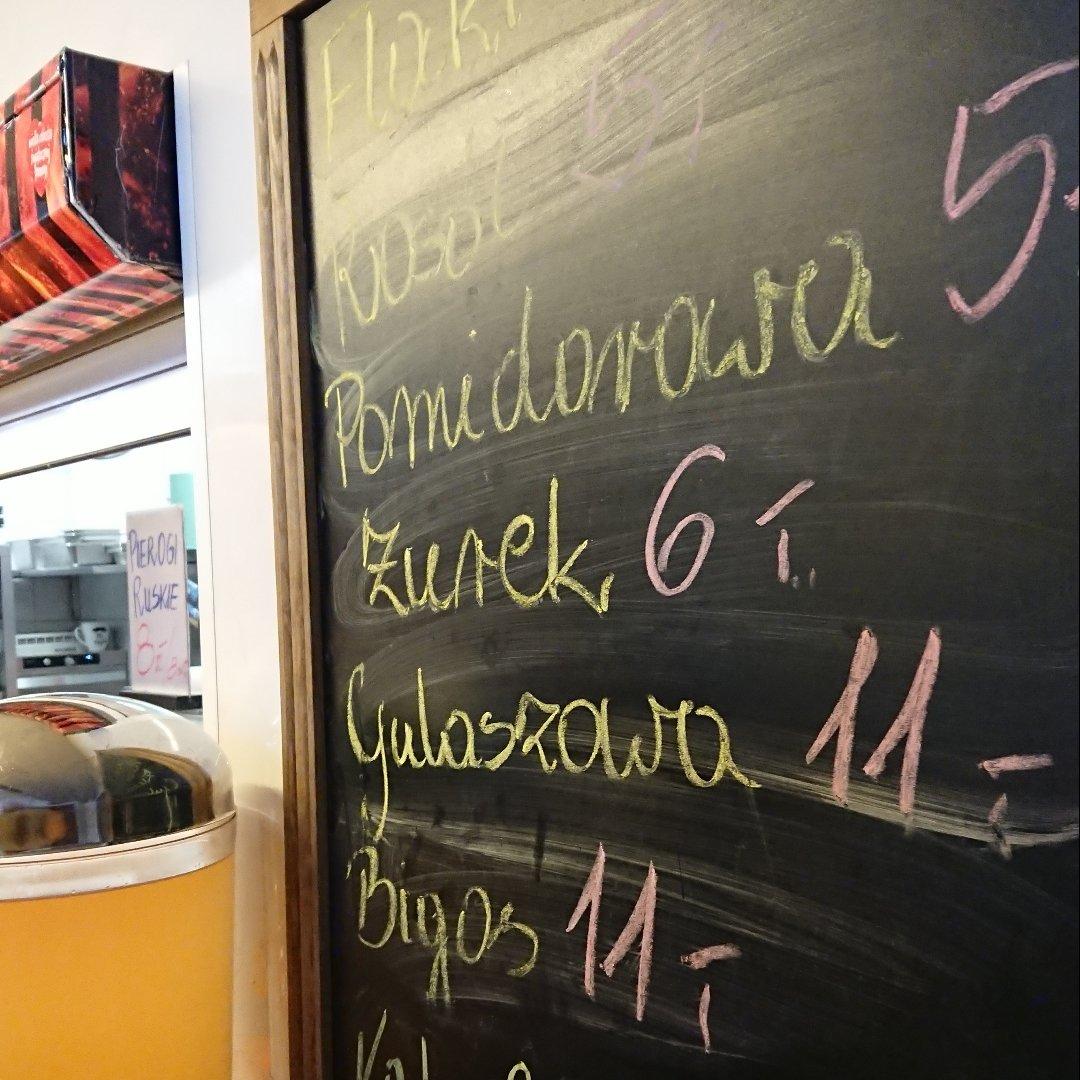 Flaki
Rosół 5,
Pomidorowa 5
Żurek 6,-
Gulaszowa 11,-
Bigos 11,-
PIEROGI
RUSKIE
8zł